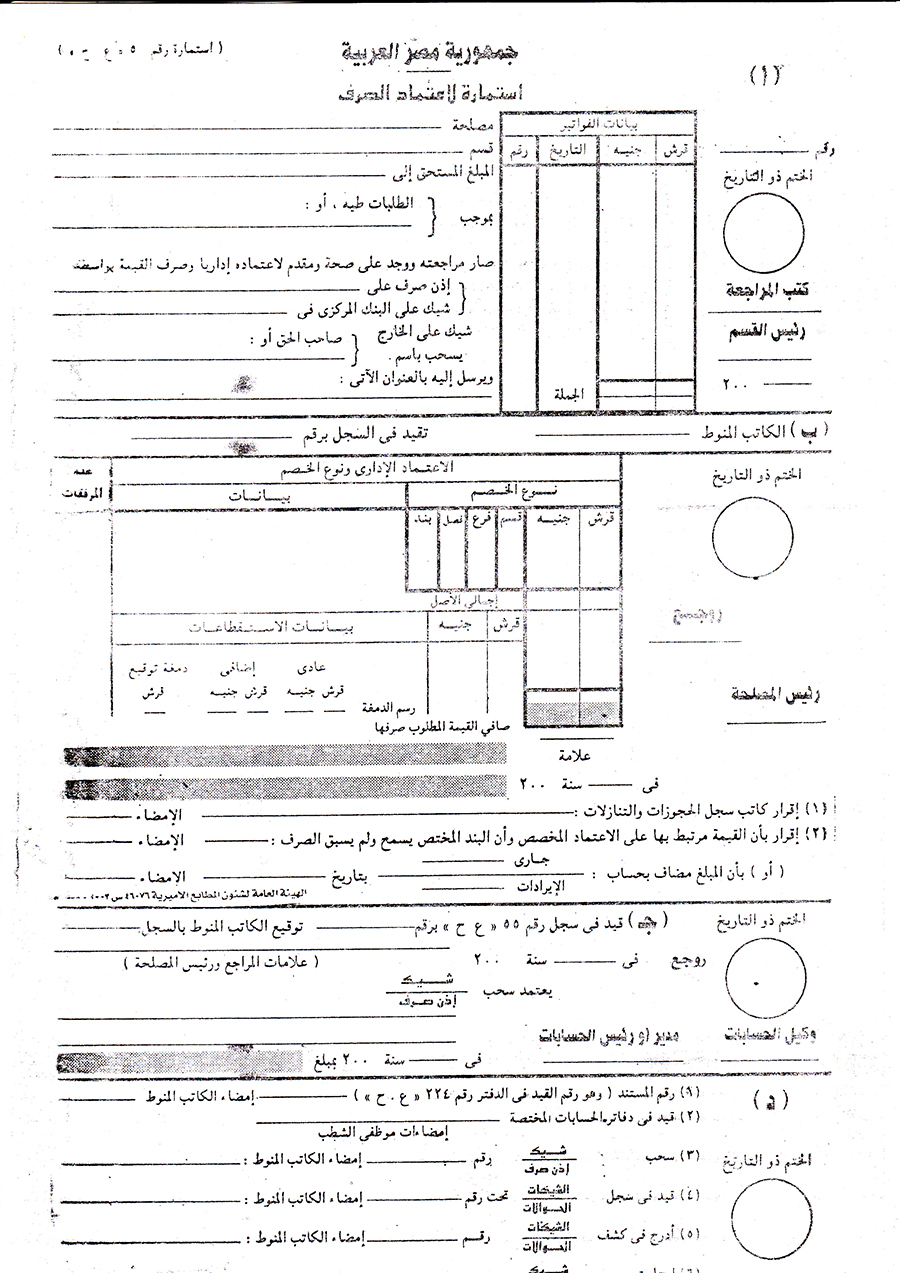 ( استمارة رقم ٥٠ ع ح )
جمهورية مصر العربية
(١)
استمارة لاعتماد الصرف
مصلحة
بيانات الفواتير
قسم
رقم التاريخ جنيه قرش
رقم
المبلغ المستحق إلى
الختم ذو التاريخ
بموجب { الطلبات طيه ، أو :
صار مراجعته ووجد على صحة ومقدم لاعتماده إداريا وصرف القيمة بواسطة
إذن صرف على
شيك على البنك المركزى فى
كتب المراجعة
شيك على الخارج
رئيس القسم
يسحب باسم . { صاحب الحق أو :
ويرسل إليه بالعنوان الآتى :
٢٠٠
الجملة
( ب ) الكاتب المنوط
تقيد فى السجل برقم
الاعتماد الإدارى ونوع الخصم
عدد المرفقات
الختم ذو التاريخ
نوع الخصم
بيانات
قرش جنيه قسم فرع فصل بند
إجمالى الأصل
روجع
قرش جنيه
بيانات الاستقطاعات
عادى إضافى دمغة توقيع
قرش جنيه قرش جنيه قرش
رئيس المصلحة
رسم الدمغة
صافي القيمة المطلوب صرفها
علامة
فى سنة ٢٠٠
(١) إقرار كاتب سجل الحجوزات والتنازلات : الإمضاء
(٢) إقرار بأن القيمة مرتبط بها على الاعتماد المخصص وأن البند المختص يسمح ولم يسبق الصرف : الإمضاء
( أو ) بأن المبلغ مضاف بحساب : جارى الإيرادات بتاريخ الإمضاء
الهيئة العامة لشئون المطابع الاميرية
( جـ ) قيد فى سجل رقم ٥٥ « ع ح » برقم توقيع الكاتب المنوط بالسجل
الختم ذو التاريخ
روجع فى سنة ٢٠٠
( علامات المراجع ورئيس المصلحة )
يعتمد سحب شيك
إذن صرف
وكيل الحسابات
مدير او رئيس الحسابات
فى سنة ٢٠٠ بمبلغ
( د )
(٩) رقم المستند ( وهو رقم القيد فى الدفتر رقم ٢٢٤ « ع . ح » ) إمضاء الكاتب المنوط
(٢) قيد فى دفاتر الحسابات المختصة
إمضاءات موظفى الشطب
الختم ذو التاريخ
(٣) سحب شيك إذن صرف رقم إمضاء الكاتب المنوط :
(٤) قيد فى سجل الشيكات الحوالات تحت رقم إمضاء الكاتب المنوط :
(٥) أدرج فى كشف الشيكات الحوالات رقم إمضاء الكاتب المنوط :